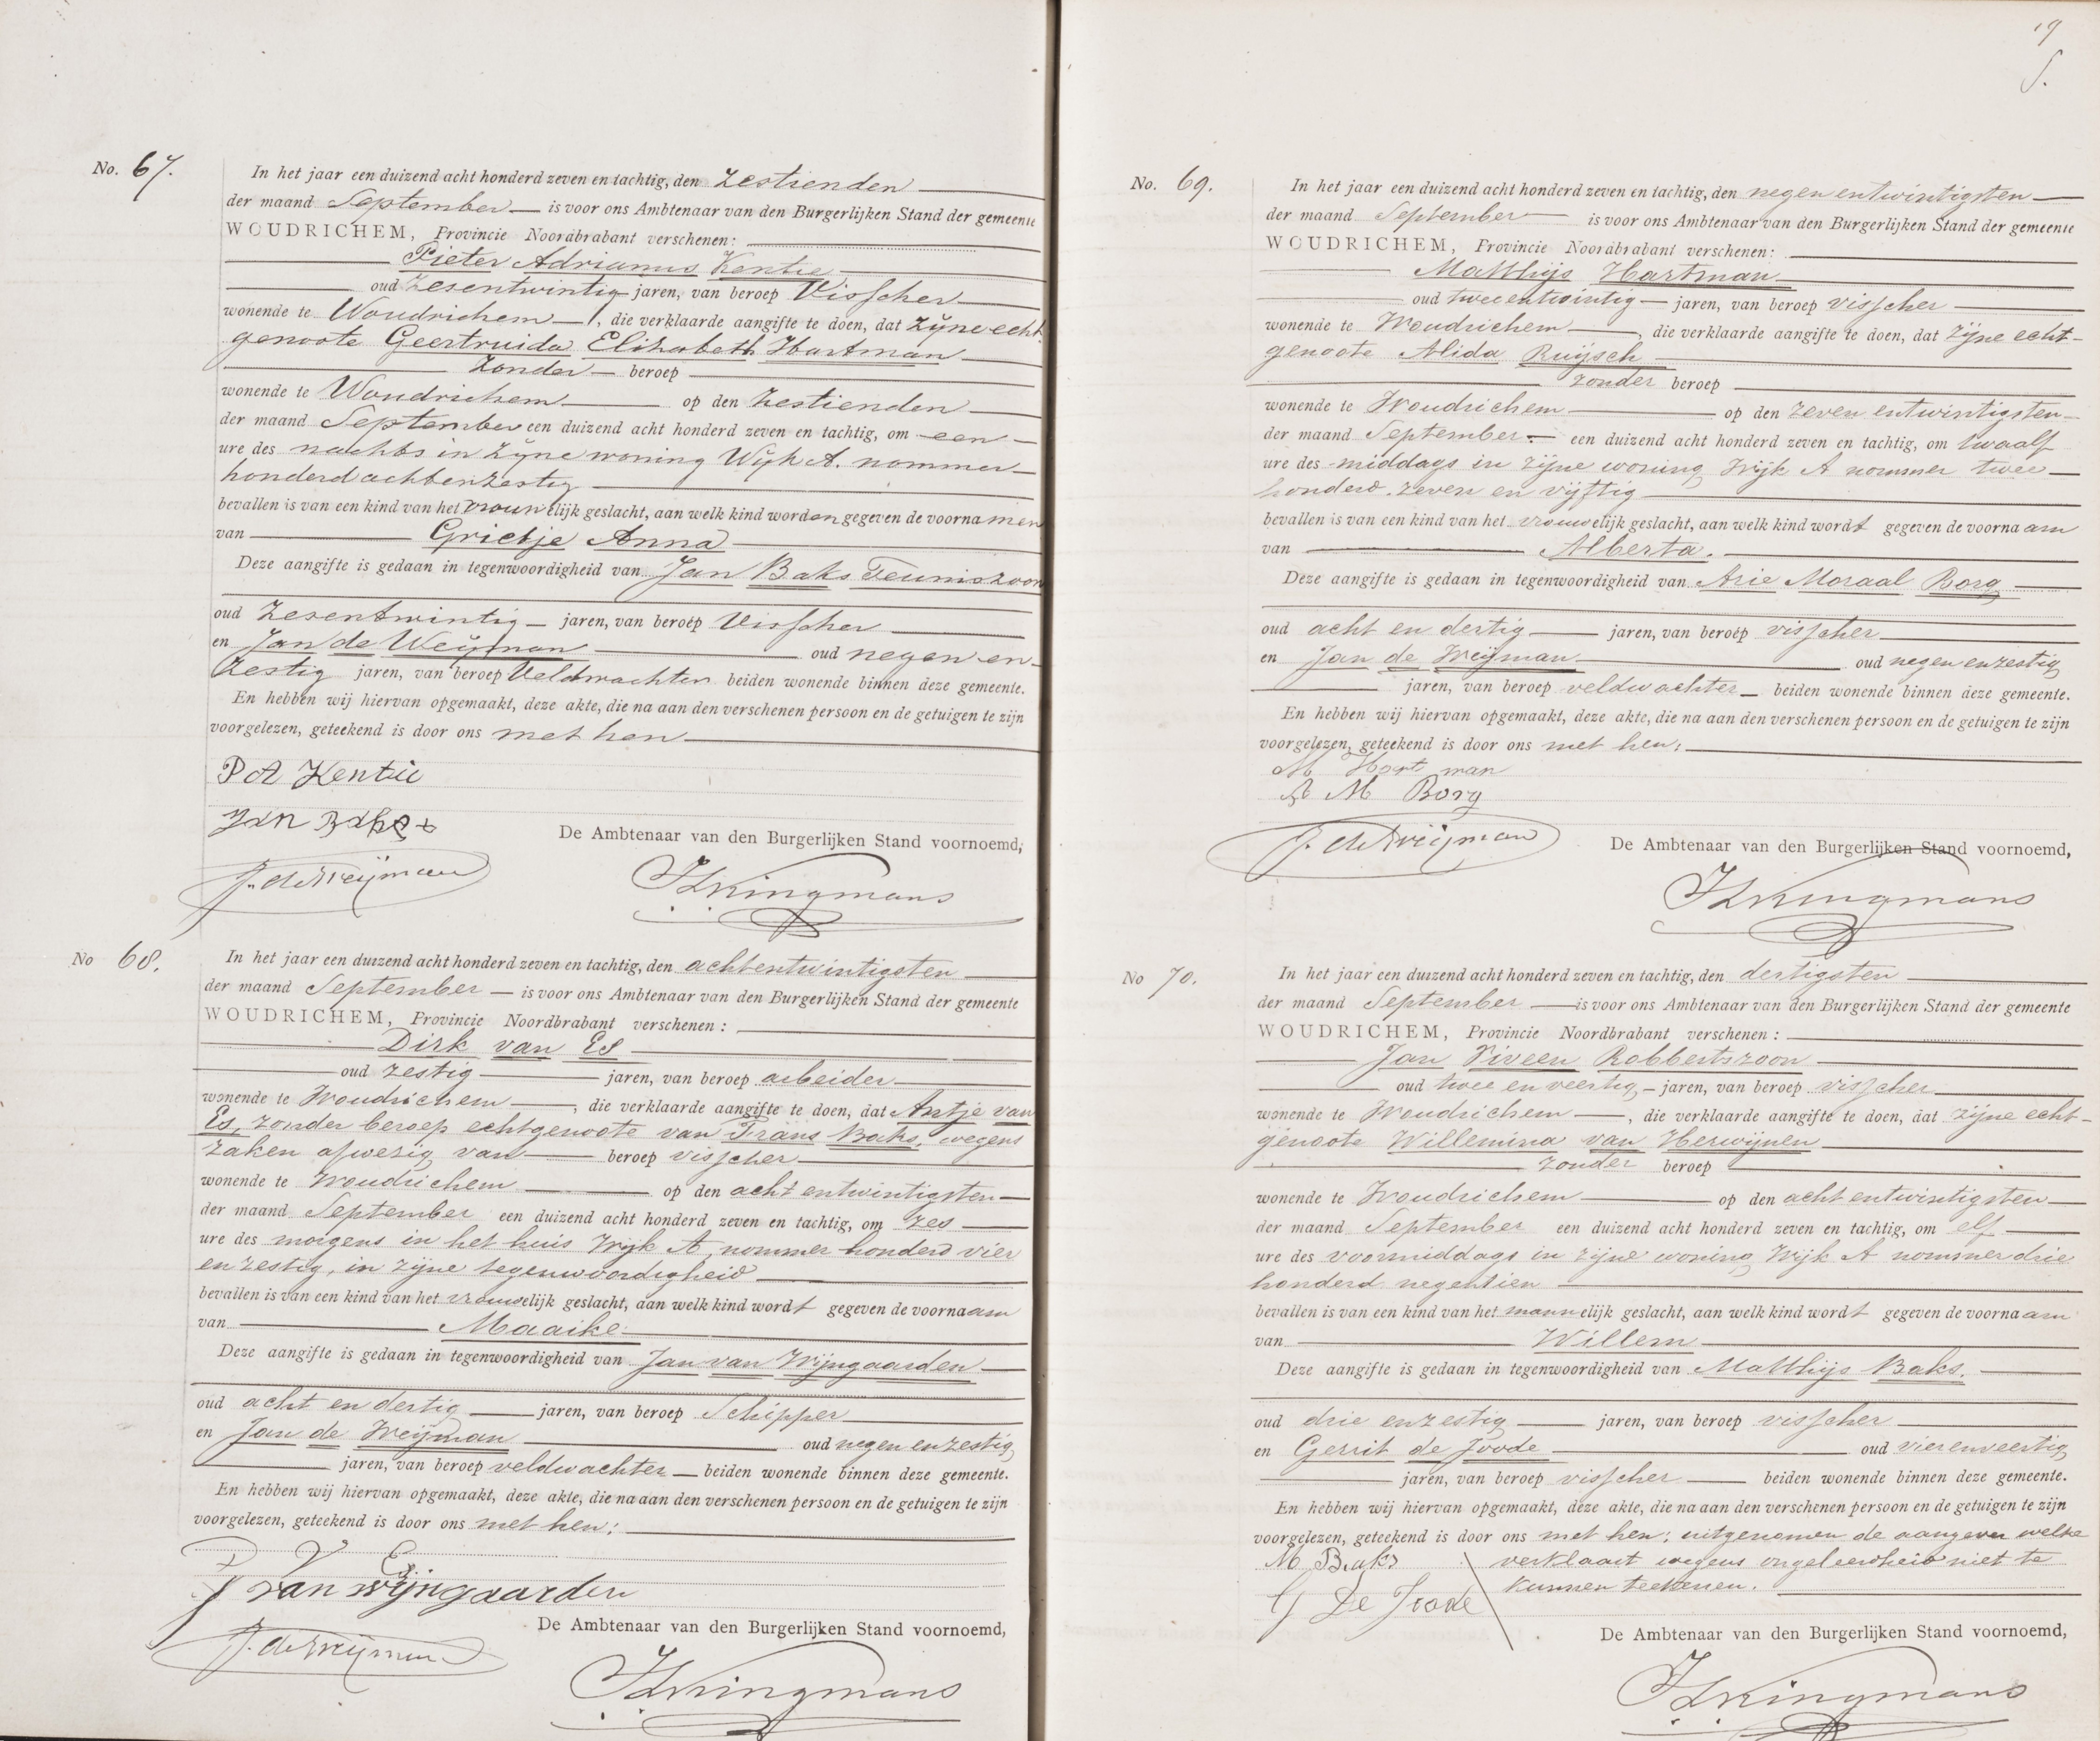 No. 67.
In het jaar een duizend acht honderd zeven en tachtig, den zestienden
der maand September is voor ons Ambtenaar van den Burgerlijken Stand der gemeente
WOUDRICHEM, Provincie Noordbrabant verschenen:
Pieter Adrianus Kentie
oud zesentwintig jaren, van beroep Visscher
wonende te Woudrichem, die verklaarde aangifte te doen, dat zijne echt-
genoote Geertruida Elizabeth Hartman
Zonder beroep
wonende te Woudrichem op den zestienden
der maand September een duizend acht honderd zeven en tachtig, om een
ure des nachts in zijne woning Wijk A. nommer
honderdachtenzestig
bevallen is van een kind van het vrouwelijk geslacht, aan welk kind worden gegeven de voornamen
van Grietje Anna
Deze aangifte is gedaan in tegenwoordigheid van Jan Baks Teuniszoon
oud zesentwintig jaren, van beroep Visscher
en Jan de Weijman oud negen en-
zestig jaren, van beroep Veldwachter beiden wonende binnen deze gemeente.
En hebben wij hiervan opgemaakt, deze akte, die na aan den verschenen persoon en de getuigen te zijn
voorgelezen, geteekend is door ons met hen
P A Kentie
Jan Baks
J. de Weijman
De Ambtenaar van den Burgerlijken Stand voornoemd,
Kingmans
No 68.
In het jaar een duizend acht honderd zeven en tachtig, den achtentwintigsten
der maand September is voor ons Ambtenaar van den Burgerlijken Stand der gemeente
WOUDRICHEM, Provincie Noordbrabant verschenen:
Dirk van Es
oud zestig jaren, van beroep arbeider
wonende te Woudrichem, die verklaarde aangifte te doen, dat Antje van
Es, zonder beroep echtgenoote van Frans Baks, wegens
zaken afwezig van beroep visscher
wonende te Woudrichem op den acht entwintigsten
der maand September een duizend acht honderd zeven en tachtig, om zes
ure des morgens in het huis Wijk A, nommer honderd vier
en zestig, in zijne tegenwoordigheid
bevallen is van een kind van het vrouwelijk geslacht, aan welk kind wordt gegeven de voornaam
van Maaike
Deze aangifte is gedaan in tegenwoordigheid van Jan van Wijngaarden
oud acht en dertig jaren, van beroep Schipper
en Jan de Weijman oud negen en zestig
jaren, van beroep veldwachter beiden wonende binnen deze gemeente.
En hebben wij hiervan opgemaakt, deze akte, die na aan den verschenen persoon en de getuigen te zijn
voorgelezen, geteekend is door ons met hen:
V Es
J van wijngaarden
J. de Weijman
De Ambtenaar van den Burgerlijken Stand voornoemd,
Kingmans
19
No. 69.
In het jaar een duizend acht honderd zeven en tachtig, den negen entwintigsten
der maand September is voor ons Ambtenaar van den Burgerlijken Stand der gemeente
WOUDRICHEM, Provincie Noordbrabant verschenen:
Matthijs Hartman
oud tweeentwintig jaren, van beroep visscher
wonende te Woudrichem, die verklaarde aangifte te doen, dat zijne echt-
genoote Alida Ruijsch
zonder beroep
wonende te Woudrichem op den zeven entwintigsten
der maand September een duizend acht honderd zeven en tachtig, om twaalf
ure des middags in zijne woning Wijk A nommer twee
honderd zeven en vijftig
bevallen is van een kind van het vrouwelijk geslacht, aan welk kind wordt gegeven de voornaam
van Alberta.
Deze aangifte is gedaan in tegenwoordigheid van Arie Moraal Borg
oud acht en dertig jaren, van beroep visscher
en Jan de Weijman oud negen enzestig
jaren, van beroep veldwachter beiden wonende binnen deze gemeente.
En hebben wij hiervan opgemaakt, deze akte, die na aan den verschenen persoon en de getuigen te zijn
voorgelezen, geteekend is door ons met hen:
M Hartman
A M Borg
J. de Weijman
De Ambtenaar van den Burgerlijken Stand voornoemd,
Kingmans
No 70.
In het jaar een duizend acht honderd zeven en tachtig, den dertigsten
der maand September is voor ons Ambtenaar van den Burgerlijken Stand der gemeente
WOUDRICHEM, Provincie Noordbrabant verschenen:
Jan Viveen Robbertszoon
oud twee en veertig jaren, van beroep visscher
wonende te Woudrichem, die verklaarde aangifte te doen, dat zijne echt-
genoote Willemina van Herwijnen
zonder beroep
wonende te Woudrichem op den acht entwintigsten
der maand September een duizend acht honderd zeven en tachtig, om elf
ure des voormiddags in zijne woning Wijk A nommer drie
honderd negentien
bevallen is van een kind van het mannelijk geslacht, aan welk kind wordt gegeven de voornaam
van Willem
Deze aangifte is gedaan in tegenwoordigheid van Matthijs Baks.
oud drie enzestig jaren, van beroep visscher
en Gerrit de Joode oud vierenveertig
jaren, van beroep visscher beiden wonende binnen deze gemeente.
En hebben wij hiervan opgemaakt, deze akte, die na aan den verschenen persoon en de getuigen te zijn
voorgelezen, geteekend is door ons met hen; uitgenomen de aangever welke
M. Baks verklaart wegens ongeleerdheid niet te
kunnen teekenen.
G De Joode
De Ambtenaar van den Burgerlijken Stand voornoemd,
Kingmans